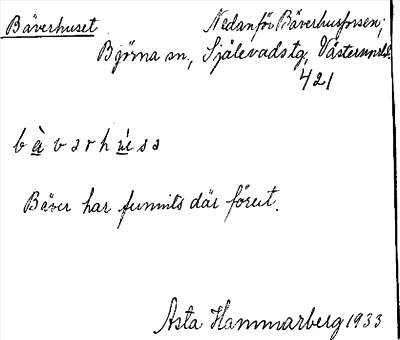 Bäverhuset Nedanför Bäverhusforsen;
Björna sn, Själevadstg, Västernorrl.
421
b à v ə r h ú s ə
Bäver har funnits där förut.
Asta Hammarberg 1933